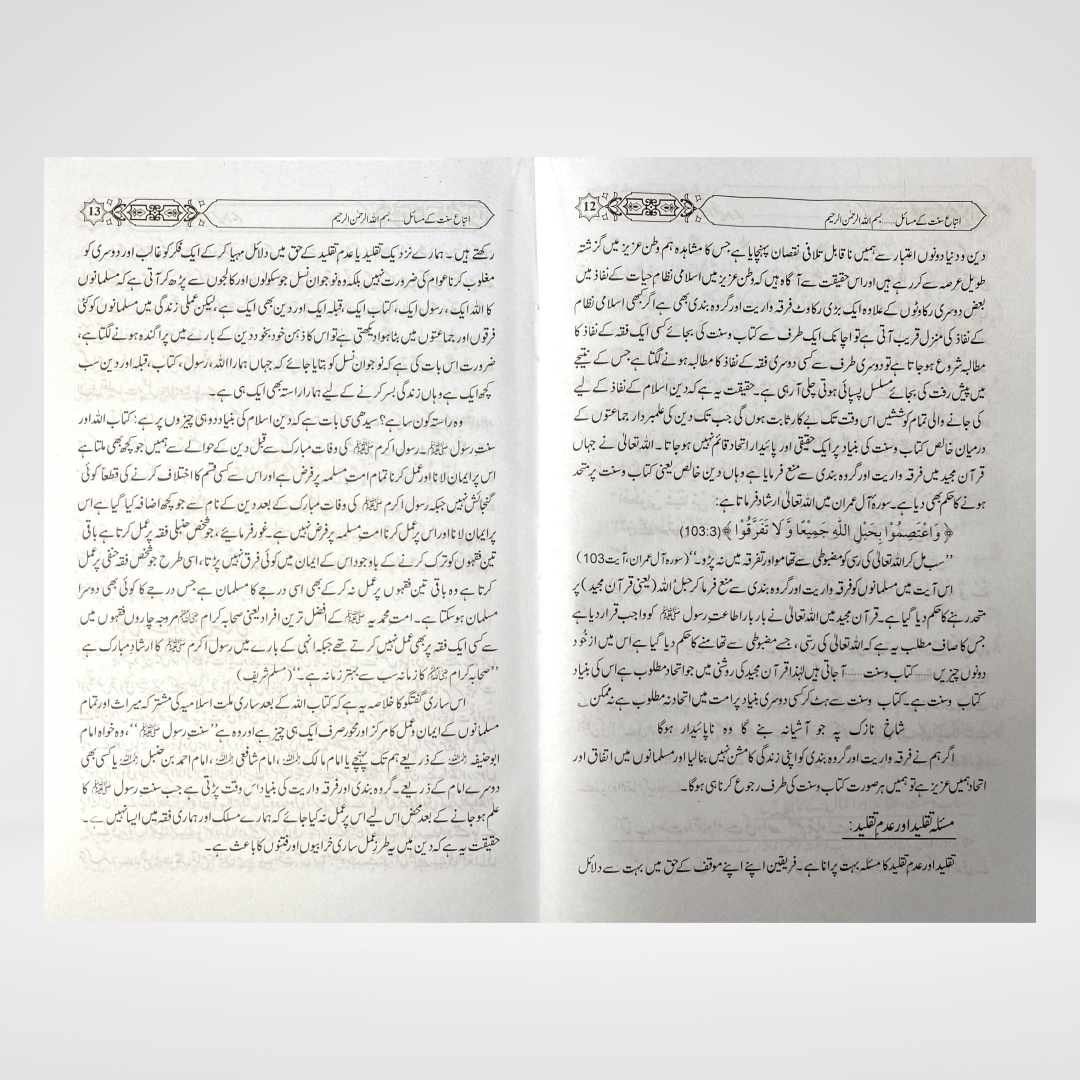 12
اتباع سنت کے مسائل......بسم اللہ الرحمٰن الرحیم
دین و دنیا دونوں اعتبار سے ہمیں ناقابل تلافی نقصان پہنچایا ہے جس کا مشاہدہ ہم وطن عزیز میں گزشتہ
طویل عرصہ سے کر رہے ہیں اور اس حقیقت سے آگاہ ہیں کہ وطن عزیز میں اسلامی نظام حیات کے نفاذ میں
بعض دوسری رکاوٹوں کے علاوہ ایک بڑی رکاوٹ فرقہ واریت اور گروہ بندی بھی ہے اگر کبھی اسلامی نظام
کے نفاذ کی منزل قریب آتی ہے تو اچانک ایک طرف سے کتاب وسنت کی بجائے کسی ایک فقہ کے نفاذ کا
مطالبہ شروع ہو جاتا ہے تو دوسری طرف سے کسی دوسری فقہ کے نفاذ کا مطالبہ ہونے لگتا ہے جس کے نتیجے
میں پیش رفت کی بجائے مسلسل پسپائی ہوتی چلی آرہی ہے۔ حقیقت یہ ہے کہ دین اسلام کے نفاذ کے لیے
کی جانے والی تمام کوششیں اس وقت تک بے کار ثابت ہوں گی جب تک دین کی علمبردار جماعتوں کے
درمیان خالص کتاب وسنت کی بنیاد پر ایک حقیقی اور پائیدار اتحاد قائم نہیں ہو جاتا۔ اللہ تعالیٰ نے جہاں
قرآن مجید میں فرقہ واریت اور گروہ بندی سے منع فرمایا ہے وہاں دین خالص یعنی کتاب وسنت پر متحد
ہونے کا حکم بھی دیا ہے۔ سورہ آل عمران میں اللہ تعالیٰ ارشاد فرماتا ہے:
﴿ وَاعْتَصِمُوْا بِحَبْلِ اللّٰهِ جَمِيْعًا وَّ لَا تَفَرَّقُوْا ﴾(103:3)
’’سب مل کر اللہ تعالیٰ کی رسی کو مضبوطی سے تھامو اور تفرقہ میں نہ پڑو۔‘‘ (سورہ آل عمران، آیت 103)
اس آیت میں مسلمانوں کو فرقہ واریت اور گروہ بندی سے منع فرما کر حبل اللہ (یعنی قرآن مجید) پر
متحد رہنے کا حکم دیا گیا ہے۔ قرآن مجید میں اللہ تعالیٰ نے بار بار اطاعت رسول ﷺ کو واجب قرار دیا ہے
جس کا صاف مطلب یہ ہے کہ اللہ تعالیٰ کی رسی، جسے مضبوطی سے تھامنے کا حکم دیا گیا ہے اس میں از خود
دونوں چیزیں......کتاب وسنت......آجاتی ہیں لہٰذا قرآن مجید کی روشنی میں جو اتحاد مطلوب ہے اس کی بنیاد
کتاب وسنت ہے۔ کتاب وسنت سے ہٹ کر کسی دوسری بنیاد پر امت میں اتحاد نہ مطلوب ہے نہ ممکن
شاخ نازک پہ جو آشیانہ بنے گا وہ ناپائیدار ہوگا
اگر ہم نے فرقہ واریت اور گروہ بندی کو اپنی زندگی کا مشن نہیں بنا لیا اور مسلمانوں میں اتفاق اور
اتحاد ہمیں عزیز ہے تو ہمیں ہر صورت کتاب وسنت کی طرف رجوع کرنا ہی ہوگا۔
مسئلہ تقلید اور عدم تقلید:
تقلید اور عدم تقلید کا مسئلہ بہت پرانا ہے۔ فریقین اپنے اپنے موقف کے حق میں بہت سے دلائل
13
اتباع سنت کے مسائل......بسم اللہ الرحمٰن الرحیم
رکھتے ہیں۔ ہمارے نزدیک تقلید یا عدم تقلید کے حق میں دلائل مہیا کرکے ایک فکر کو غالب اور دوسری کو
مغلوب کرنا عوام کی ضرورت نہیں بلکہ وہ نوجوان نسل جو سکولوں اور کالجوں سے پڑھ کر آتی ہے کہ مسلمانوں
کا اللہ ایک، رسول ایک، کتاب ایک، قبلہ ایک اور دین بھی ایک ہے، لیکن عملی زندگی میں مسلمانوں کو کئی
فرقوں اور جماعتوں میں بٹا ہوا دیکھتی ہے تو اس کا ذہن خود بخود دین کے بارے میں پراگندہ ہونے لگتا ہے،
ضرورت اس بات کی ہے کہ نوجوان نسل کو بتایا جائے کہ جہاں ہمارا اللہ، رسول، کتاب، قبلہ اور دین سب
کچھ ایک ہے وہاں زندگی بسر کرنے کے لیے ہمارا راستہ بھی ایک ہی ہے۔
وہ راستہ کون سا ہے؟ سیدھی سی بات ہے کہ دین اسلام کی بنیاد دو ہی چیزوں پر ہے: کتاب اللہ اور
سنت رسول ﷺ۔ رسول اکرم ﷺ کی وفات مبارک سے قبل دین کے حوالے سے ہمیں جو کچھ بھی ملتا ہے
اس پر ایمان لانا اور عمل کرنا تمام امت مسلمہ پر فرض ہے اور اس سے کسی قسم کا اختلاف کرنے کی قطعاً کوئی
گنجائش نہیں جبکہ رسول اکرم ﷺ کی وفات مبارک کے بعد دین کے نام سے جو کچھ اضافہ کیا گیا ہے اس
پر ایمان لانا اور اس پر عمل کرنا امت مسلمہ پر فرض نہیں ہے۔ غور فرمایئے، جو شخص حنبلی فقہ پر عمل کرتا ہے باقی
تین فقہوں کو ترک کرنے کے باوجود اس کے ایمان میں کوئی فرق نہیں پڑتا، اسی طرح جو شخص فقہ حنفی پر عمل
کرتا ہے وہ باقی تین فقہوں پر عمل نہ کرکے بھی اسی درجے کا مسلمان ہے جس درجے کا کوئی بھی دوسرا
مسلمان ہو سکتا ہے۔ امت محمدیہ ﷺ کے افضل ترین افراد یعنی صحابہ کرام مروجہ چاروں فقہوں میں
سے کسی ایک فقہ پر بھی عمل نہیں کرتے تھے جبکہ انہی کے بارے میں رسول اکرم ﷺ کا ارشاد مبارک ہے
’’صحابہ کرام کا زمانہ سب سے بہتر زمانہ ہے۔‘‘ (مسلم شریف)
اس ساری گفتگو کا خلاصہ یہ ہے کہ کتاب اللہ کے بعد ساری ملت اسلامیہ کی مشترکہ میراث اور تمام
مسلمانوں کے ایمان و عمل کا مرکز اور محور صرف ایک ہی چیز ہے اور وہ ہے ’’سنت رسول ﷺ‘‘، وہ خواہ امام
ابوحنیفہ رحمہ اللہ کے ذریعے ہم تک پہنچے یا امام مالک رحمہ اللہ، امام شافعی رحمہ اللہ، امام احمد بن حنبل رحمہ اللہ یا کسی بھی
دوسرے امام کے ذریعے۔ گروہ بندی اور فرقہ واریت کی بنیاد اس وقت پڑتی ہے جب سنت رسول ﷺ کا
علم ہو جانے کے بعد محض اس لیے اس پر عمل نہ کیا جائے کہ ہمارے مسلک اور ہماری فقہ میں ایسا نہیں ہے۔
حقیقت یہ ہے کہ دین میں یہ طرز عمل ساری خرابیوں اور فتنوں کا باعث ہے۔